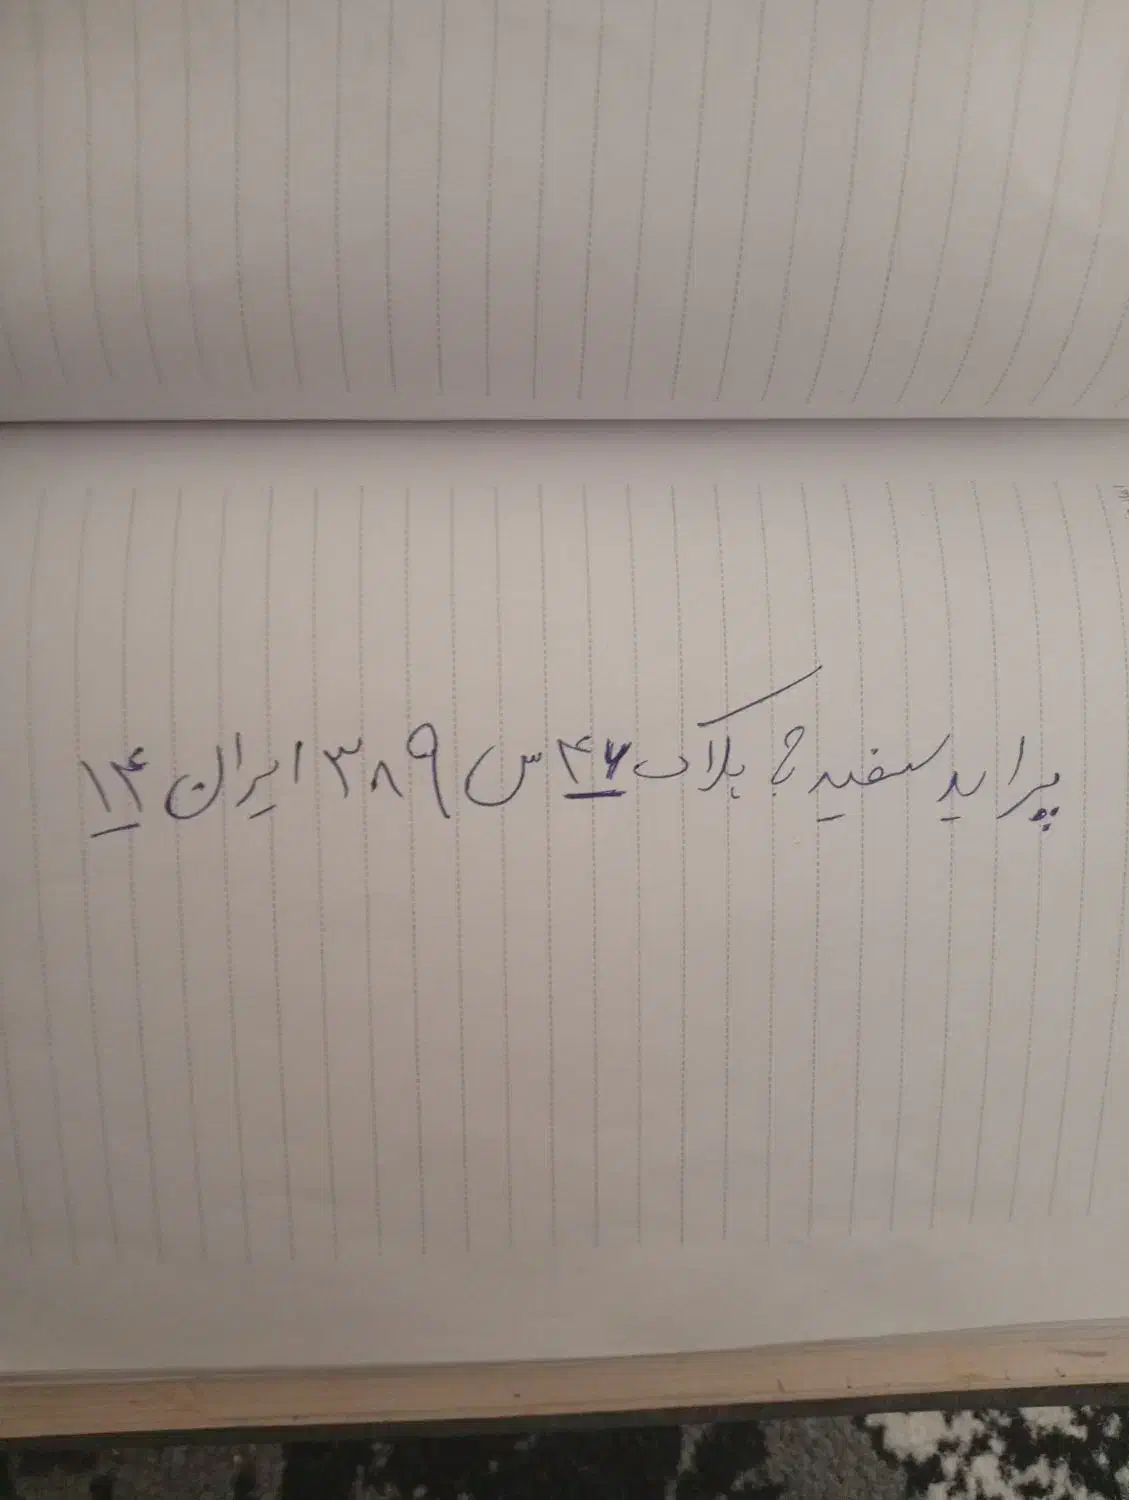 پراید سفید به پلاک ۴۶ س ۳۸۹ ایران ۱۴